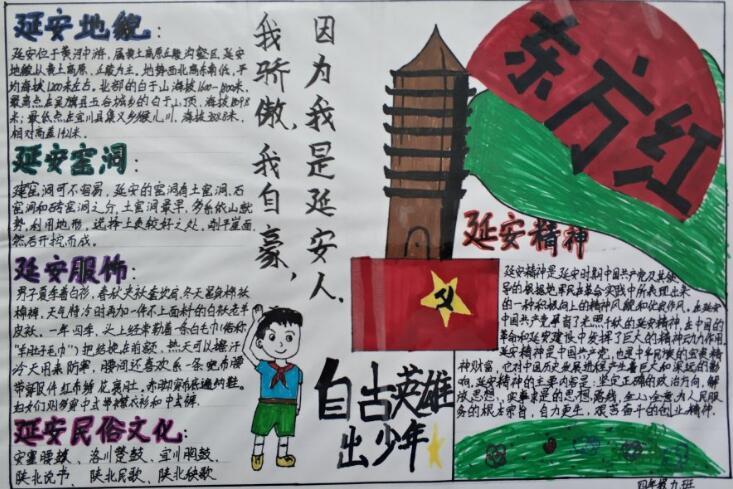 延安地貌:
延安位于黄河中游，属黄土高原丘陵沟壑区。延安
地貌以黄土高原、丘陵为主。地势西北高东南低，平
均海拔1200米左右。北部的白于山海拔1600—1800米，
最高点在吴旗县五谷城乡的白于山顶，海拔1809.8
米；最低点在宜川县集义乡猴儿川，海拔388.8米，
相对高差1421米。
延安窑洞:
建窑洞可不容易，延安的窑洞有土窑洞、石
窑洞和砖窑洞之分，土窑洞最早，多系依山就
势，利用地形，选择土质较杆之处，削平崖面，
然后开挖而成。
延安服饰:
男子夏季着白衫，春秋夹袄套坎肩，冬天着棉袄
棉裤，天气特冷时再加一件不上面料的白板老羊
皮袄。一年四季，头上经常勒着一条白毛巾(俗称
"羊肚子毛巾")把结挽在前额，热天可以擦汗
冷天用来防寒，腰间还喜欢系一条
带
妇女们则多穿中式带襟衣衫和中式裤。
延安民俗文化:
安塞腰鼓、洛川蹩鼓、宜川胸鼓、
陕北说书、陕北民歌、陕北秧歌
因为我是延安人，
我骄傲，我自豪，
自古英雄
出少年
东方红
延安精神
延安精神是延安时期中国共产党及其领
导的根据地军民在革命实践中所表现出来
的一种积极向上的精神风貌和优良作风。在延安
中国共产党孕育了光照千秋的延安精神，在中国的
革命和延安建设中发挥了巨大的精神动力作用。
延安精神是中国共产党，也是中华民族的宝贵精
神财富，它对中国历史发展进程产生着巨大和深远的影
响，延安精神的主要内容是：坚定正确的政治方向，解
放思想、实事求是的思想路线，全心全意为人民服
务的根本宗旨，自力更生、艰苦奋斗的创业精神。
四年级九班